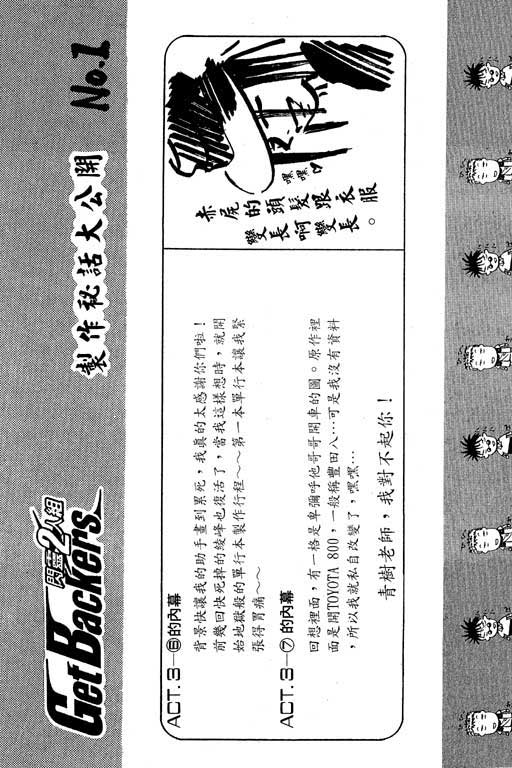 GetBackers
閃靈2人組
製作秘話大公開 No.1
ACT. 3—⑥的內幕
背景快讓我的助手畫到累死，我真的太感謝你們啦！
前幾回快死掉的綾峰也復活了，當我這樣想時，就開
始地獄般的單行本製作行程～～第一本單行本讓我緊
張得胃痛～～
ACT. 3—⑦的內幕
回想裡面，有一格是卑彌呼他哥哥開車的圖。原作裡
面是開TOYOTA 800，一般稱豐田八…可是我沒有資料
，所以我就私自改變了，嘿嘿…
青樹老師，我對不起你！
嘿嘿♡
赤屍的頭髮跟衣服
變長啊變長。